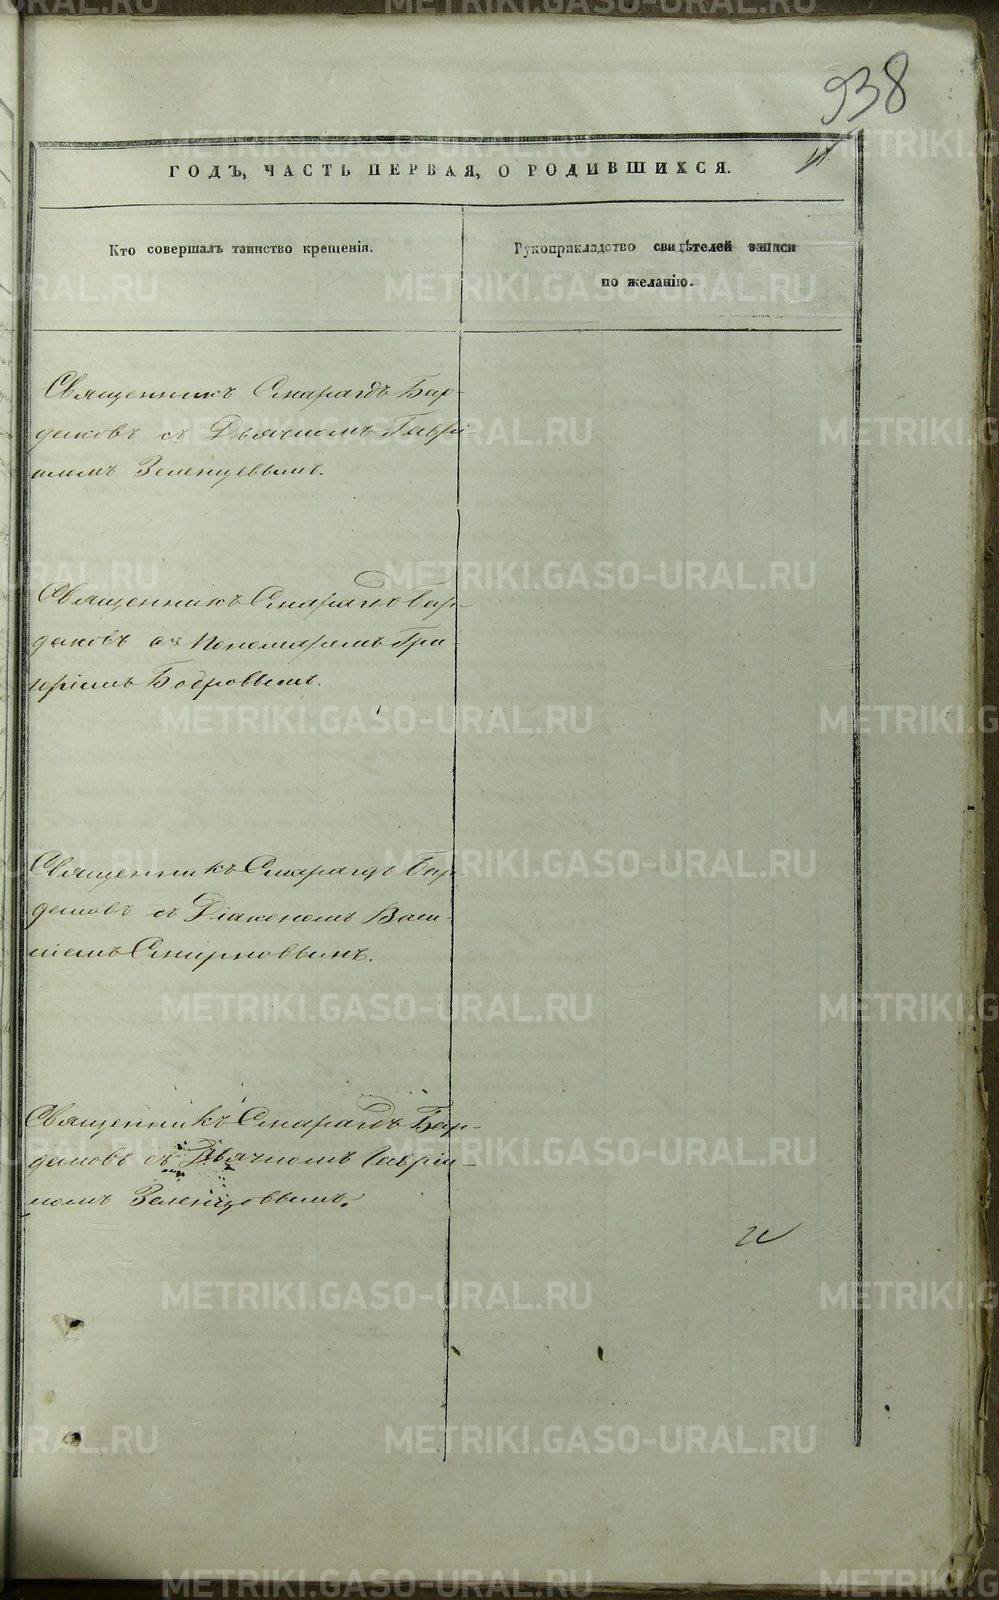 938
ГОДЪ, ЧАСТЬ ПЕРВАЯ, О РОДИВШИХСЯ.
Кто совершалъ таинство крещенія.
Рукоприкладство свидѣтелей записи
по желанію.
Священникъ Смарагдъ Бар-
даковъ съ Дьячкомъ Гаврі-
иломъ Зеленцевымъ.
Священникъ Смарагдъ Бар-
даковъ съ Пономаремъ Гри-
горіемъ Бобровымъ.
Священникъ Смарагдъ Бар-
даковъ съ Діакономъ Васи-
ліемъ Смирновымъ.
Священникъ Смарагдъ Бар-
даковъ съ Дьячкомъ Гавріи-
ломъ Зеленцовымъ.
METRIKI.GASO-URAL.RU